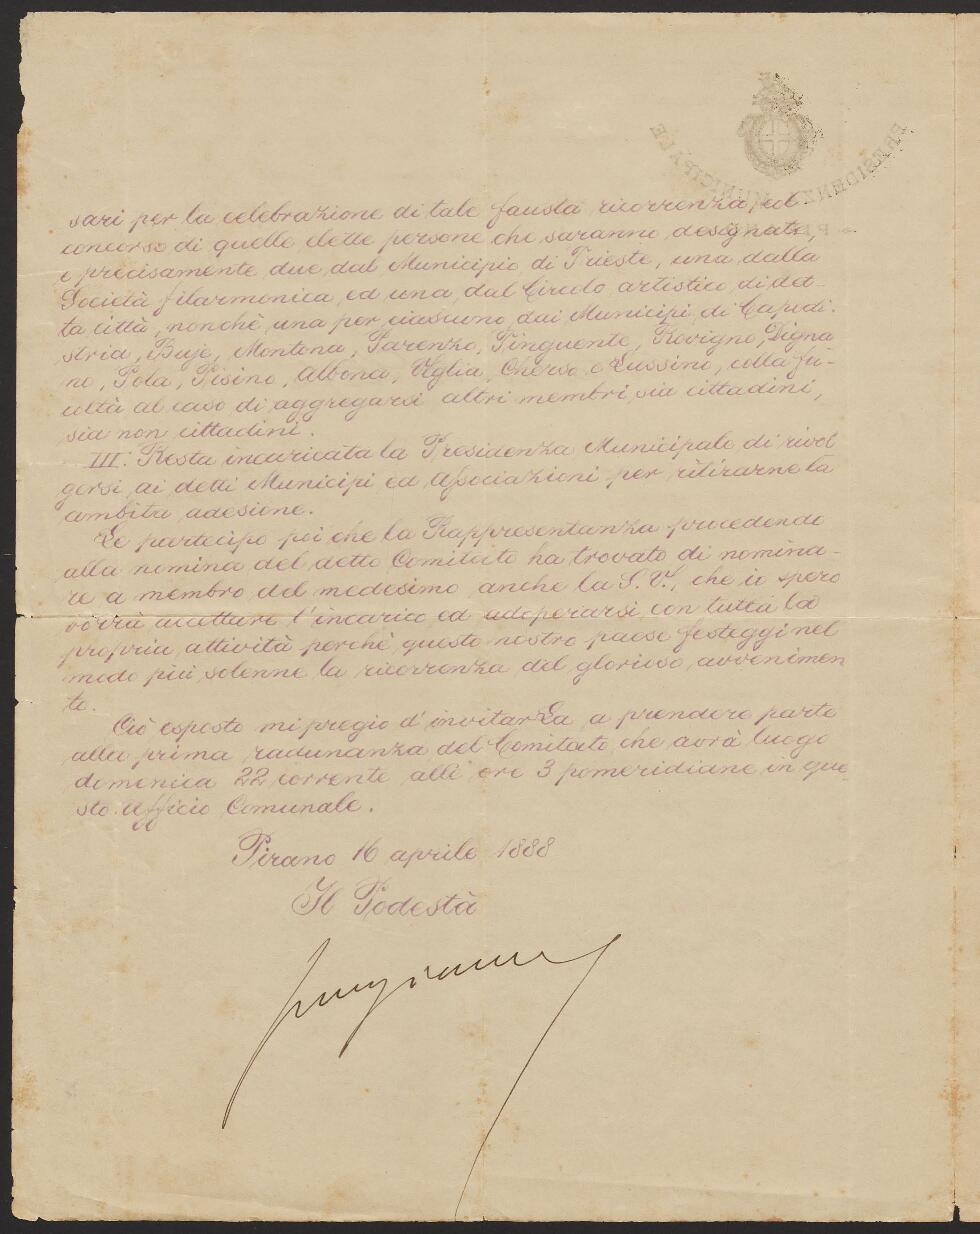 PRESIDENZA MUNICIPALE
sari per la celebrazione di tale fausta ricorrenza, col
concorso di quelle elette persone che saranno designate,
e precisamente due dal Municipio di Trieste, una dalla
Società filarmonica ed una dal Circolo artistico di det-
ta città, nonchè una per ciascuno dai Municipi di Capodi-
stria, Buje, Montona, Parenzo, Pinguente, Rovigno, Digna
no, Pola, Pisino, Albona, Veglia, Cherso e Lussino, colla fa-
coltà al caso di aggregarsi altri membri, sia cittadini,
sia non cittadini.
III. Resta incaricata la Presidenza Municipale di rivol
gersi ai detti Municipi ed Associazioni per ritirarne la
ambita adesione.
Le partecipo poi che la Rappresentanza procedendo
alla nomina del detto Comitato ha trovato di nomina-
re a membro del medesimo anche la S. V., che io spero
vorrà accettare l'incarico ed adoperarsi con tutta la
propria attività perchè questo nostro paese festeggi nel
modo più solenne la ricorrenza del glorioso avvenimen
to.
Ciò esposto mi pregio d'invitarLa a prendere parte
alla prima radunanza del Comitato che avrà luogo
domenica 22 corrente alli ore 3 pomeridiane in que-
sto Ufficio Comunale.
Pirano 16 aprile 1888
Il Podestà